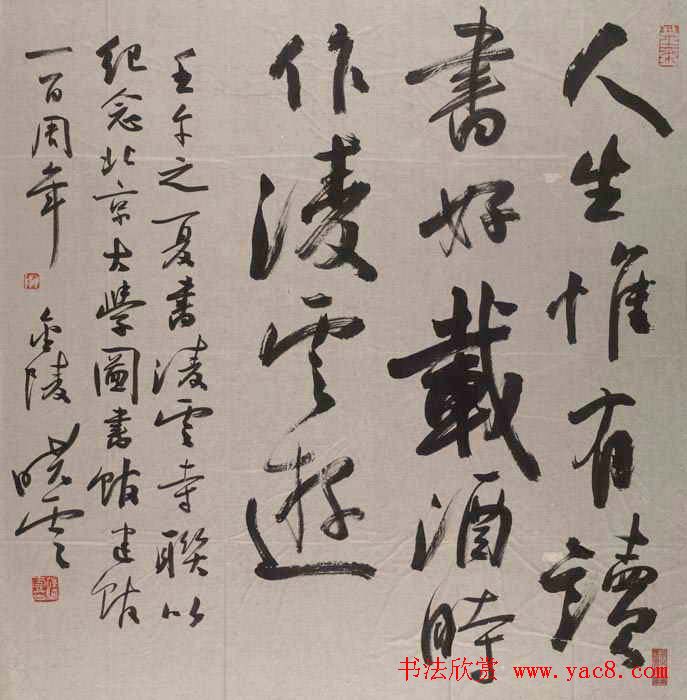 人生惟有讀
書好載酒時
作淩雲遊
壬午之夏書淩雲寺聯以
紀念北京大學圖書館建館
一百周年
金陵 曉雲
书法欣赏 www.yac8.com